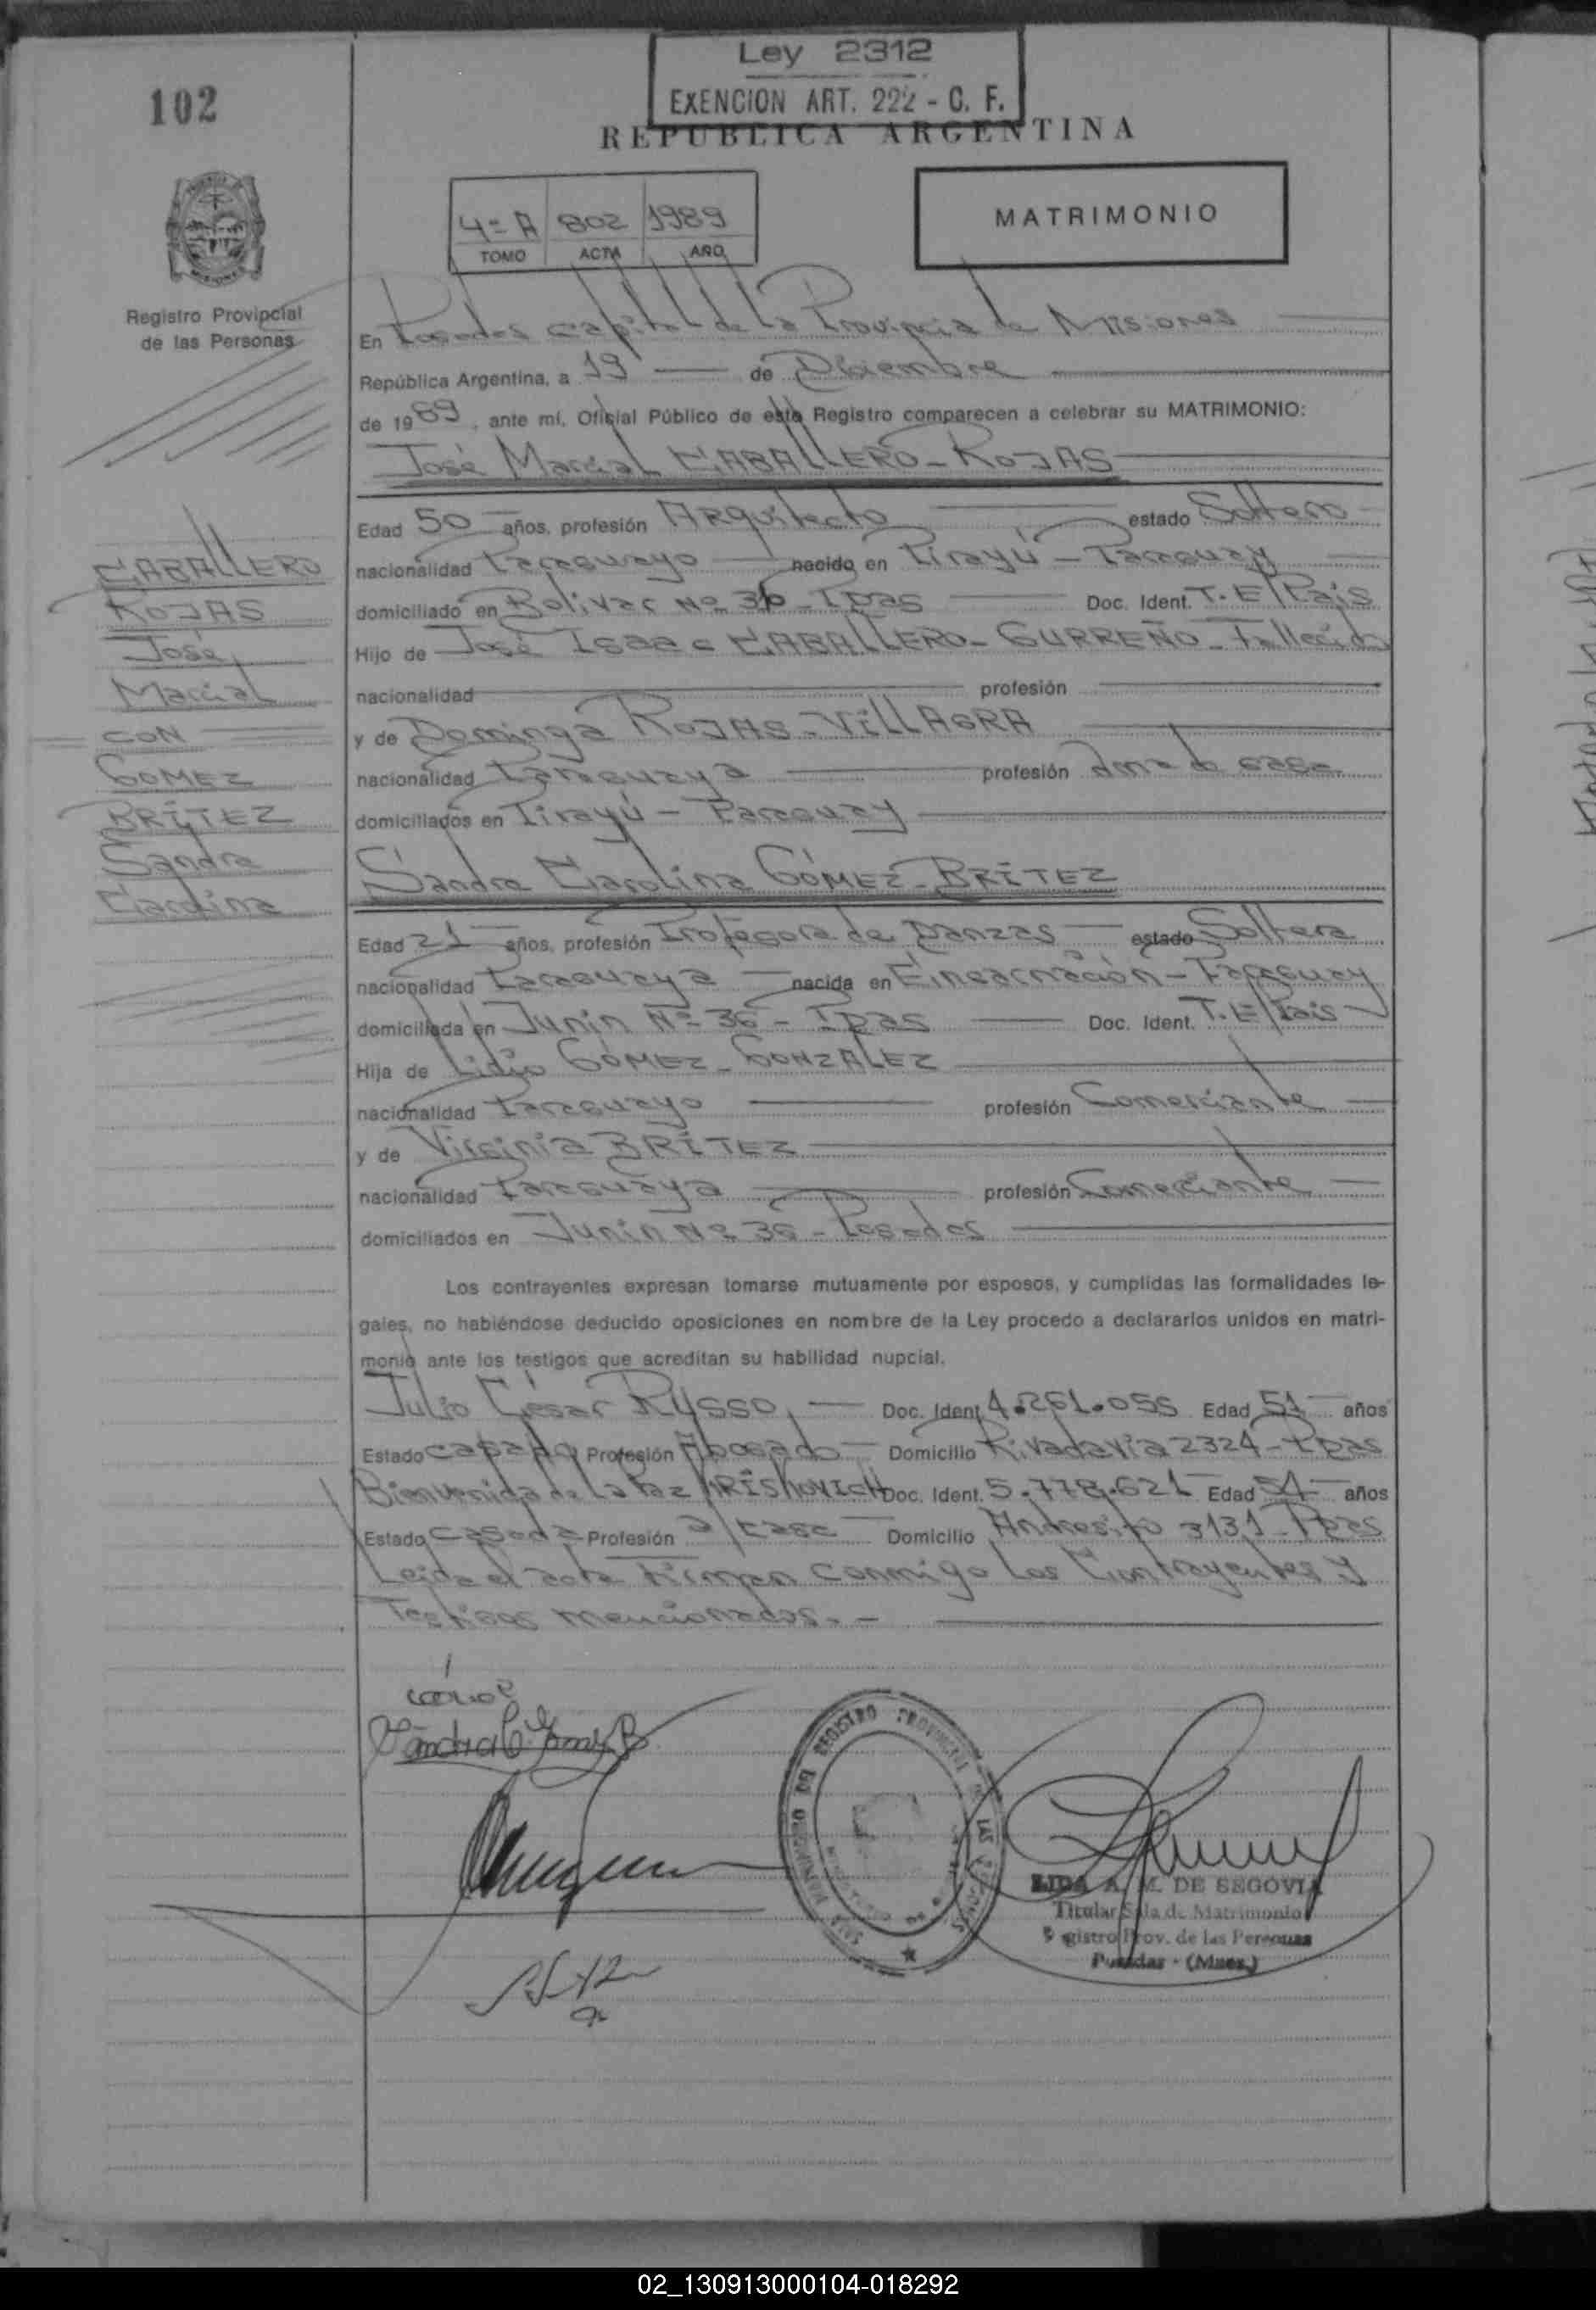 Ley 2312
EXENCION ART. 222 - C. F.
102
REPUBLICA ARGENTINA
4= A 802 1989
TOMO ACTA AÑO
MATRIMONIO
Registro Provincial
de las Personas
En Posadas Capital de la Provincia de Misiones
República Argentina, a 19 de Diciembre
de 1989, ante mí, Oficial Público de este Registro comparecen a celebrar su MATRIMONIO:
José Marcial CABALLERO-ROJAS
Edad 50 años, profesión Arquitecto estado Soltero
nacionalidad Paraguayo nacido en Pirayú - Paraguay
domiciliado en Bolivar Nº 36 - Ipas Doc. Ident. T.E/Pais
Hijo de José Isaac CABALLERO-GURREÑO - Fallecido
nacionalidad profesión
y de Dominga ROJAS-VILLAGRA
nacionalidad Paraguaya profesión ama de casa
domiciliados en Pirayú - Paraguay
CABALLERO
ROJAS
José
Marcial
CON
GOMEZ
BRÍTEZ
Sandra
Carolina
Sandra Carolina GÓMEZ-BRÍTEZ
Edad 21 años, profesión Profesora de Danzas estado Soltera
nacionalidad Paraguaya nacida en Encarnación - Paraguay
domiciliada en Junín Nº 36 - Ipas Doc. Ident. T.E/Pais
Hija de Lidio GÓMEZ-GONZALEZ
nacionalidad Paraguayo profesión Comerciante
y de Virginia BRÍTEZ
nacionalidad Paraguaya profesión Comerciante
domiciliados en Junín Nº 36 - Posadas
Los contrayentes expresan tomarse mutuamente por esposos, y cumplidas las formalidades le-
gales, no habiéndose deducido oposiciones en nombre de la Ley procedo a declararlos unidos en matri-
monio ante los testigos que acreditan su habilidad nupcial.
Julio César RUSSO, Doc. Ident. 4.261.055 Edad 51 años
Estado casado Profesión Abogado Domicilio Rivadavia 2324 - Ipas
Bienvenida de la Paz Doc. Ident. 5.778.621 Edad 54 años
Estado Casada Profesión a/casa Domicilio Andresito 3131 - Ipas
Leida el acta Firman conmigo los Contrayentes y
Testigos mencionados.-
Sandra C. Gomez B
REGISTRO PROVINCIAL DE LAS PERSONAS
LIDA A. M. DE SEGOVIA
Titular Sala de Matrimonio
Registro Prov. de las Personas
Posadas - (Mnes.)
02_130913000104-018292